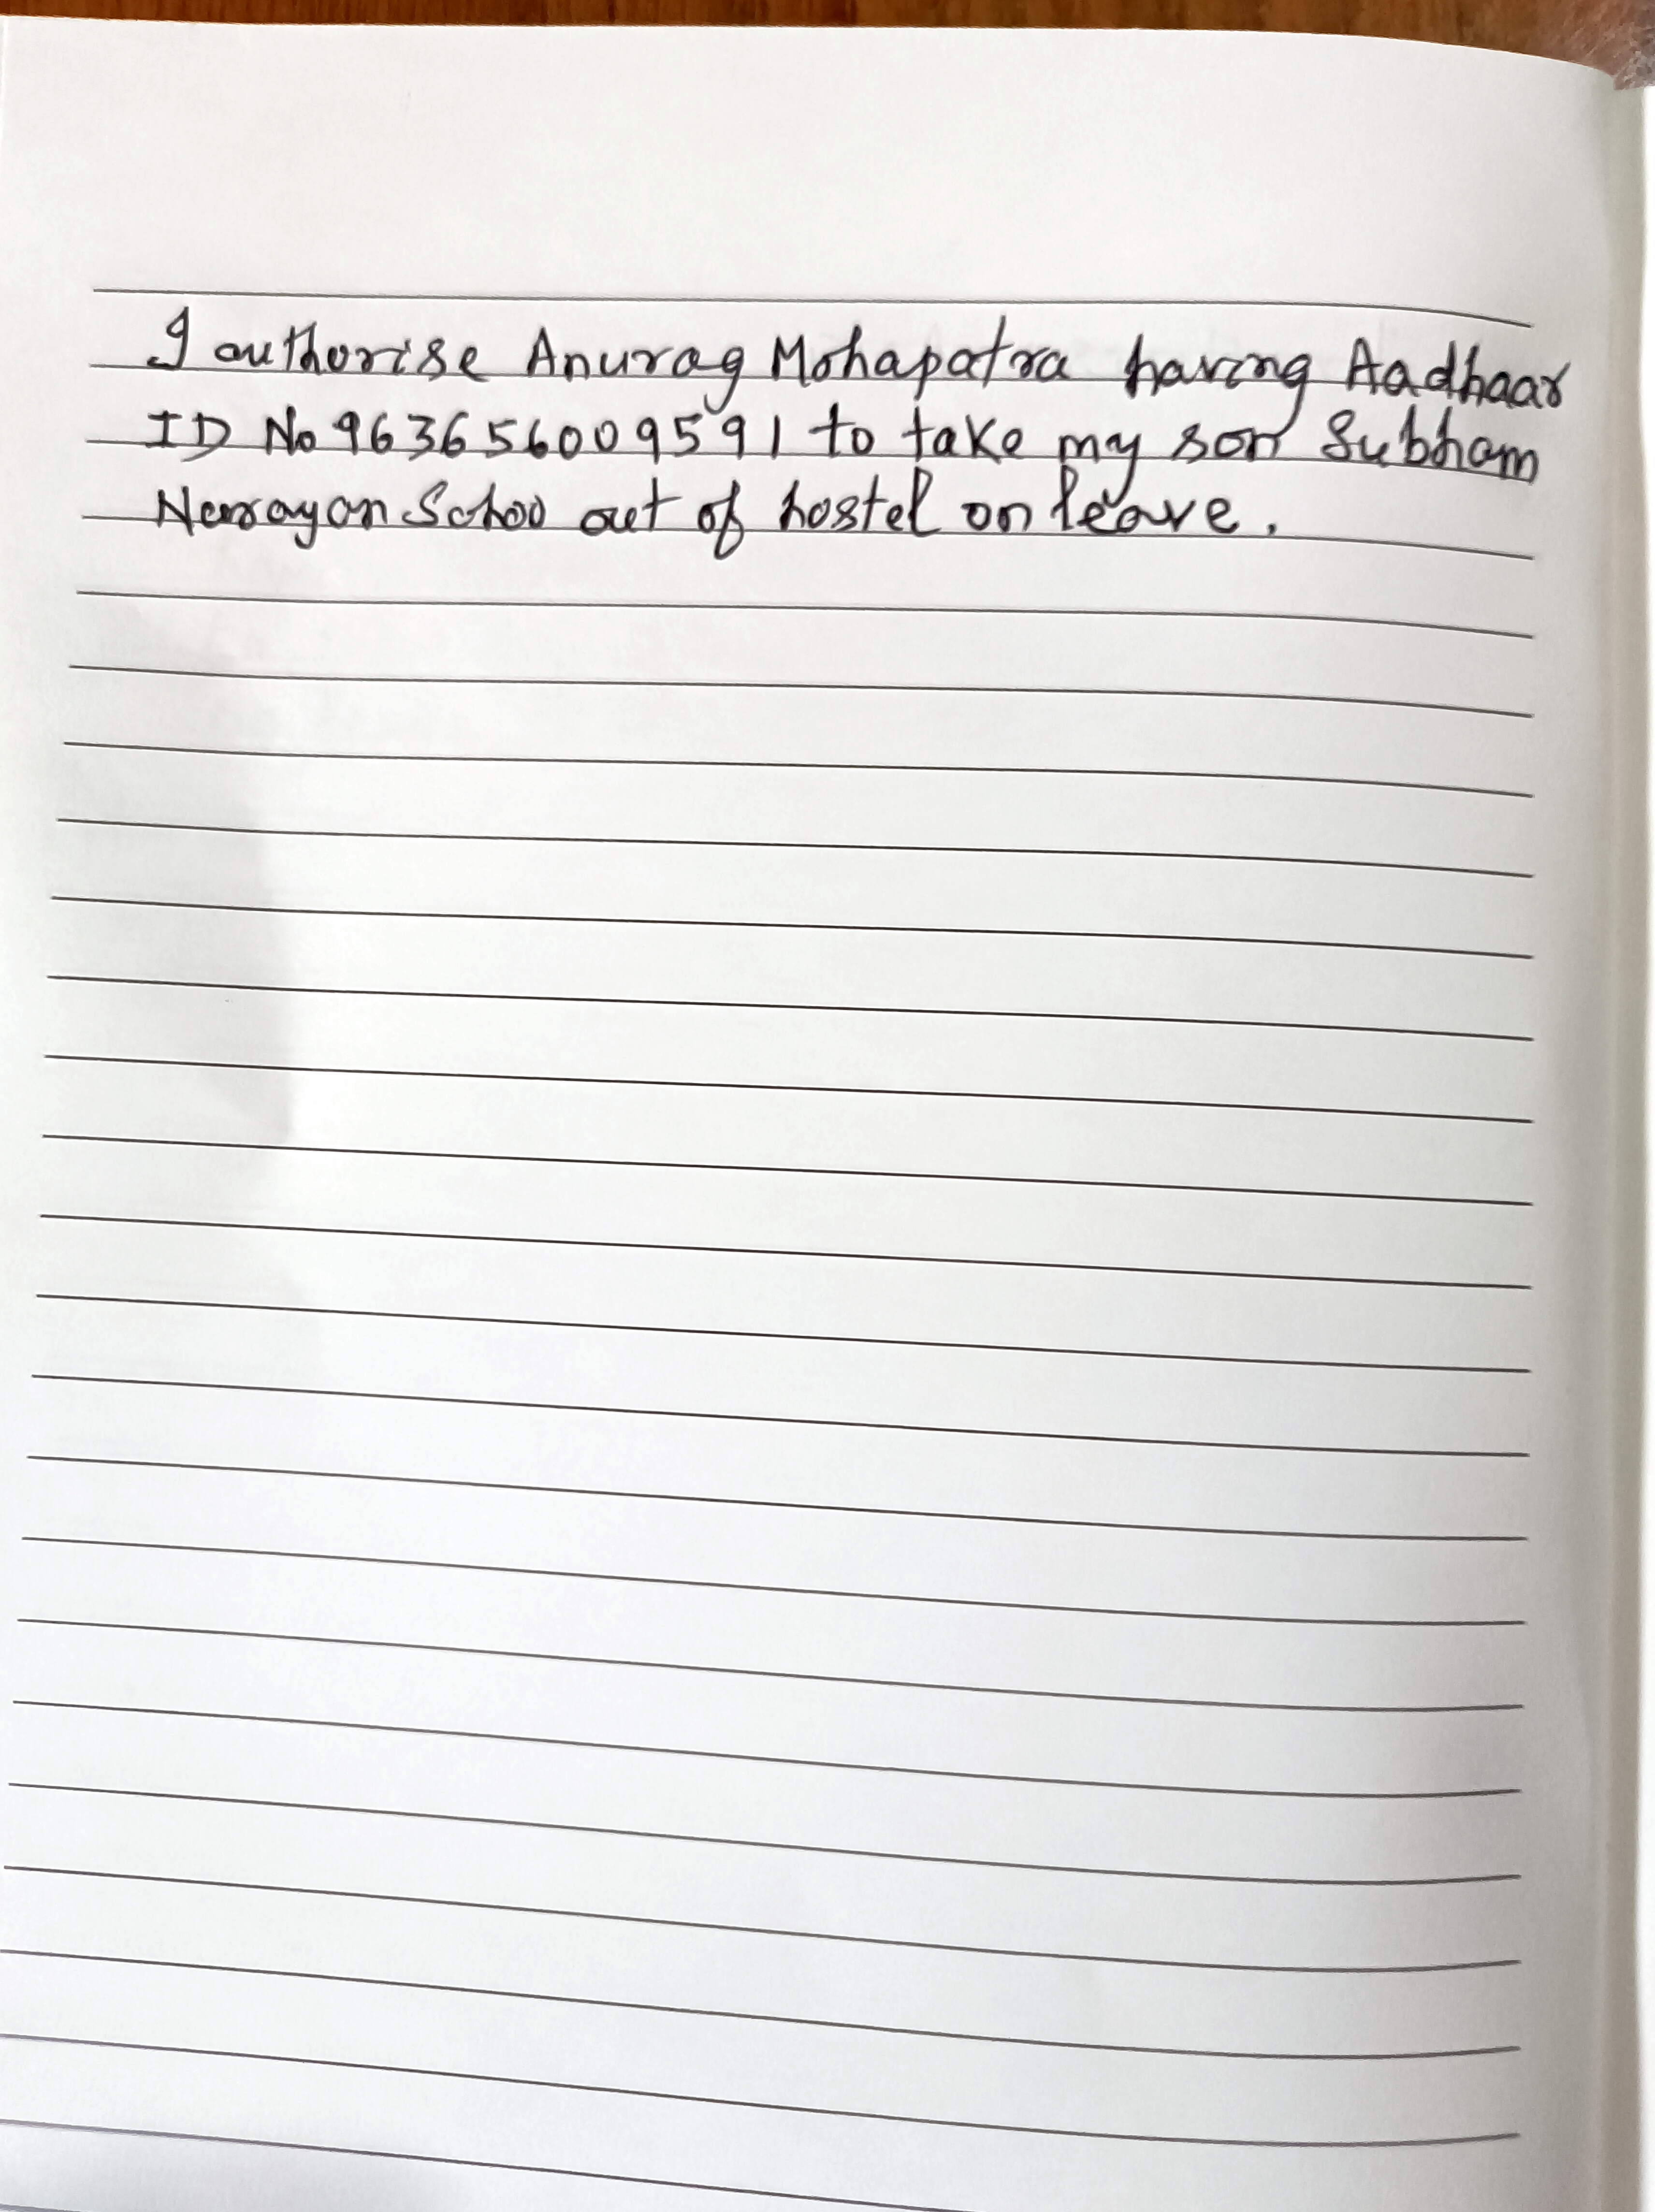 I authorise Anurag Mohapatra having Aadhaar
ID No 963656009591 to take my son Subham
Narayan Sahoo out of hostel on leave.